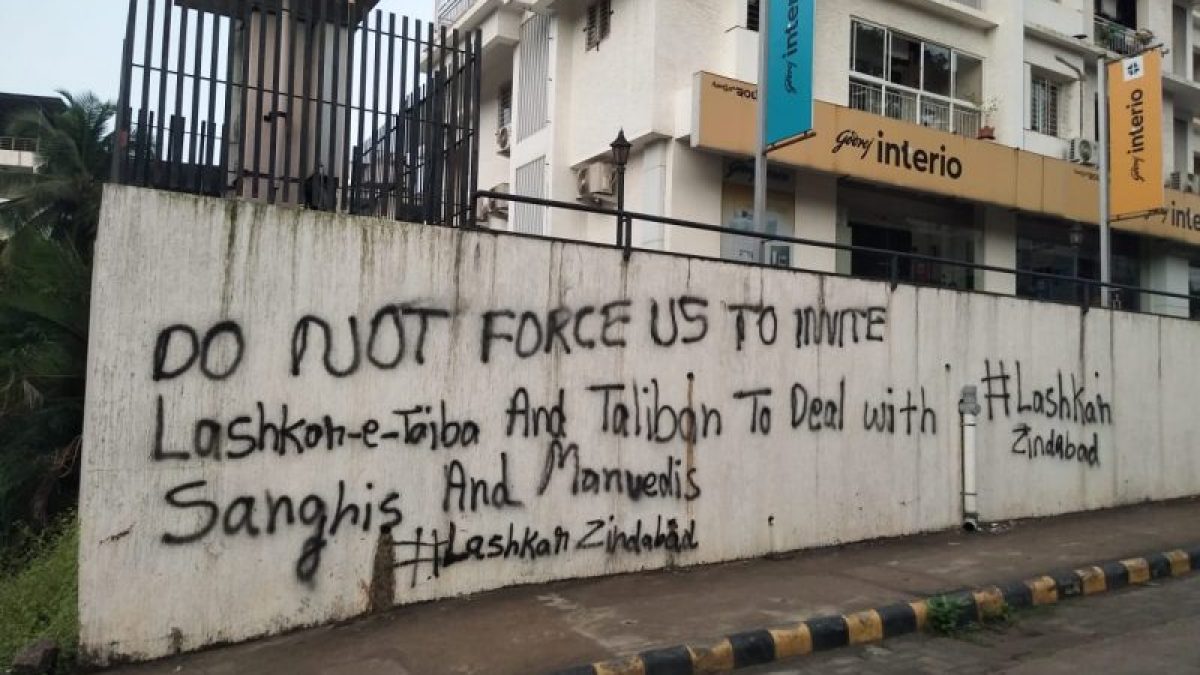 interio
Godrej interio
Godrej interio
DO NOT FORCE US TO INVITE
Lashkar-e-Taiba And Taliban To Deal with
Sanghis And Manvedis
#Lashkar Zindabad
#Lashkar
Zindabad